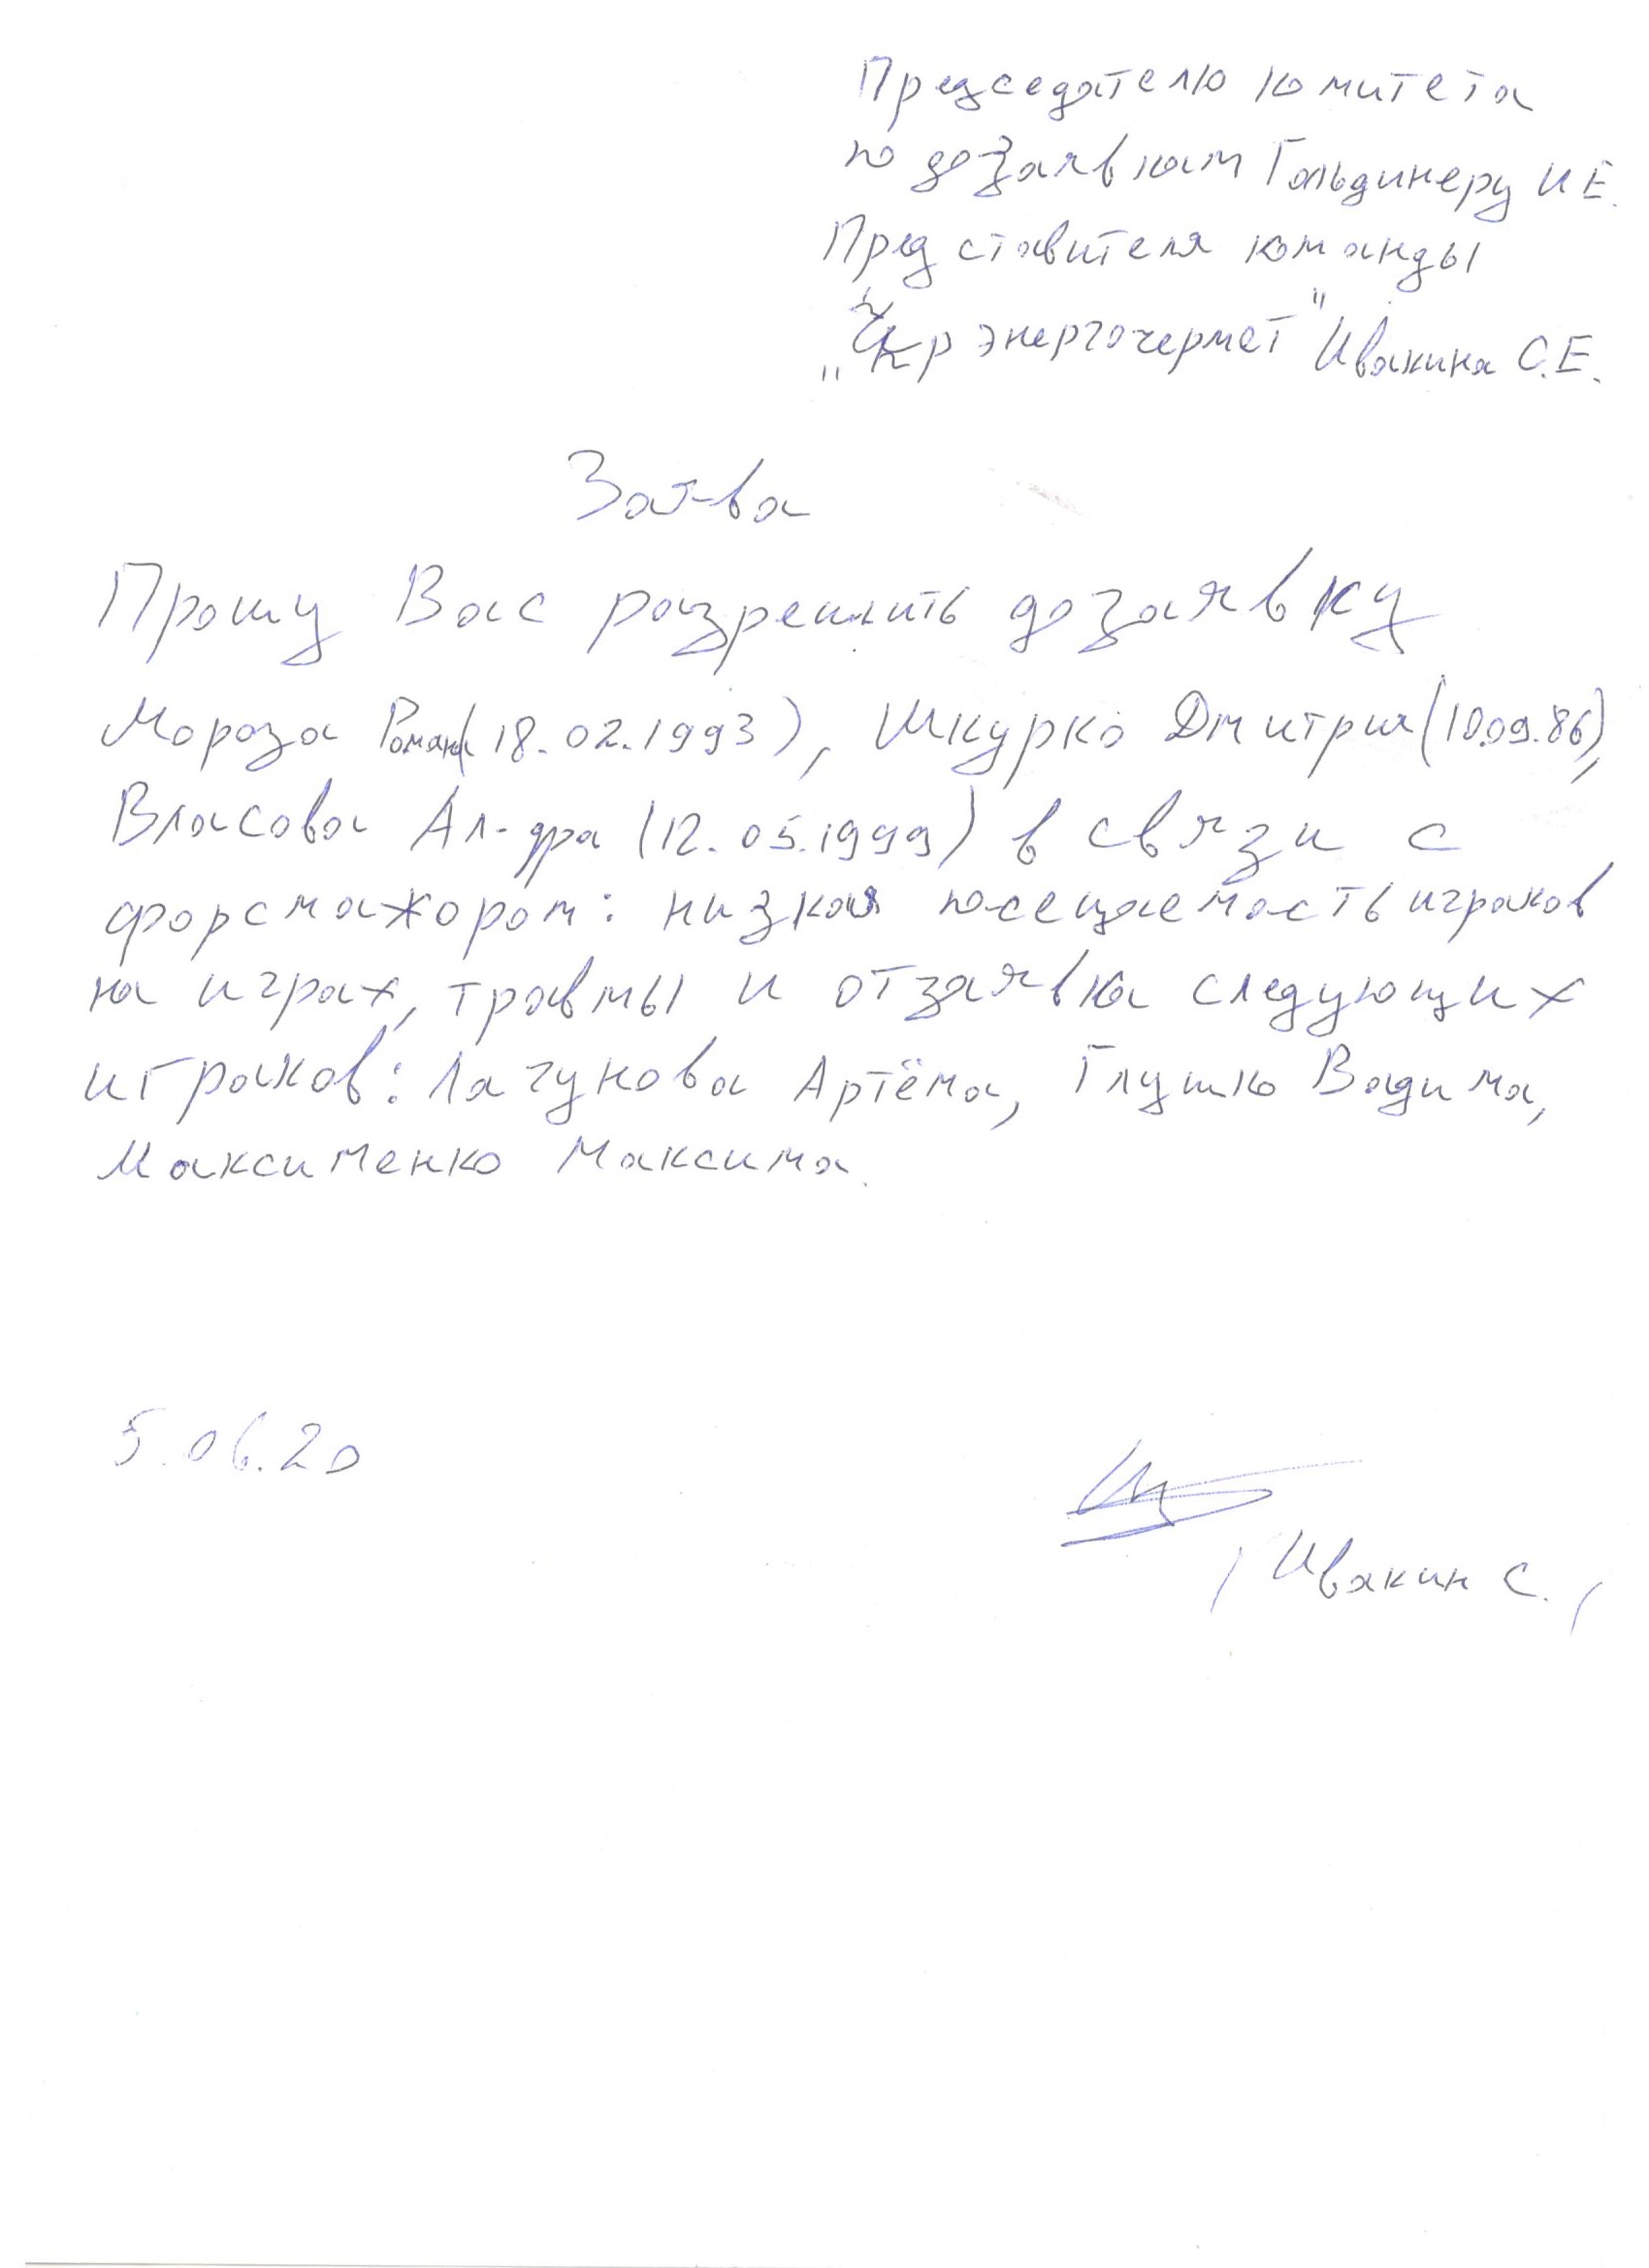 Председателю комитета
по дозаявкам Гольдинеру И.Е.
Представителя команды
„Укрэнергочермет" Ивакина С.Е.
Заява
Прошу Вас разрешить дозаявку
Мороза Романа (18.02.1993), Шкурко Дмитрия (10.09.86),
Власова Ал-дра (12.05.1999) в связи с
форсмажором: низкая посещаемость игроков
на играх, травмы и отзаявка следующих
игроков: Лагунова Артёма, Глушко Вадима,
Максименко Максима.
5.06.20
/Ивакин С./